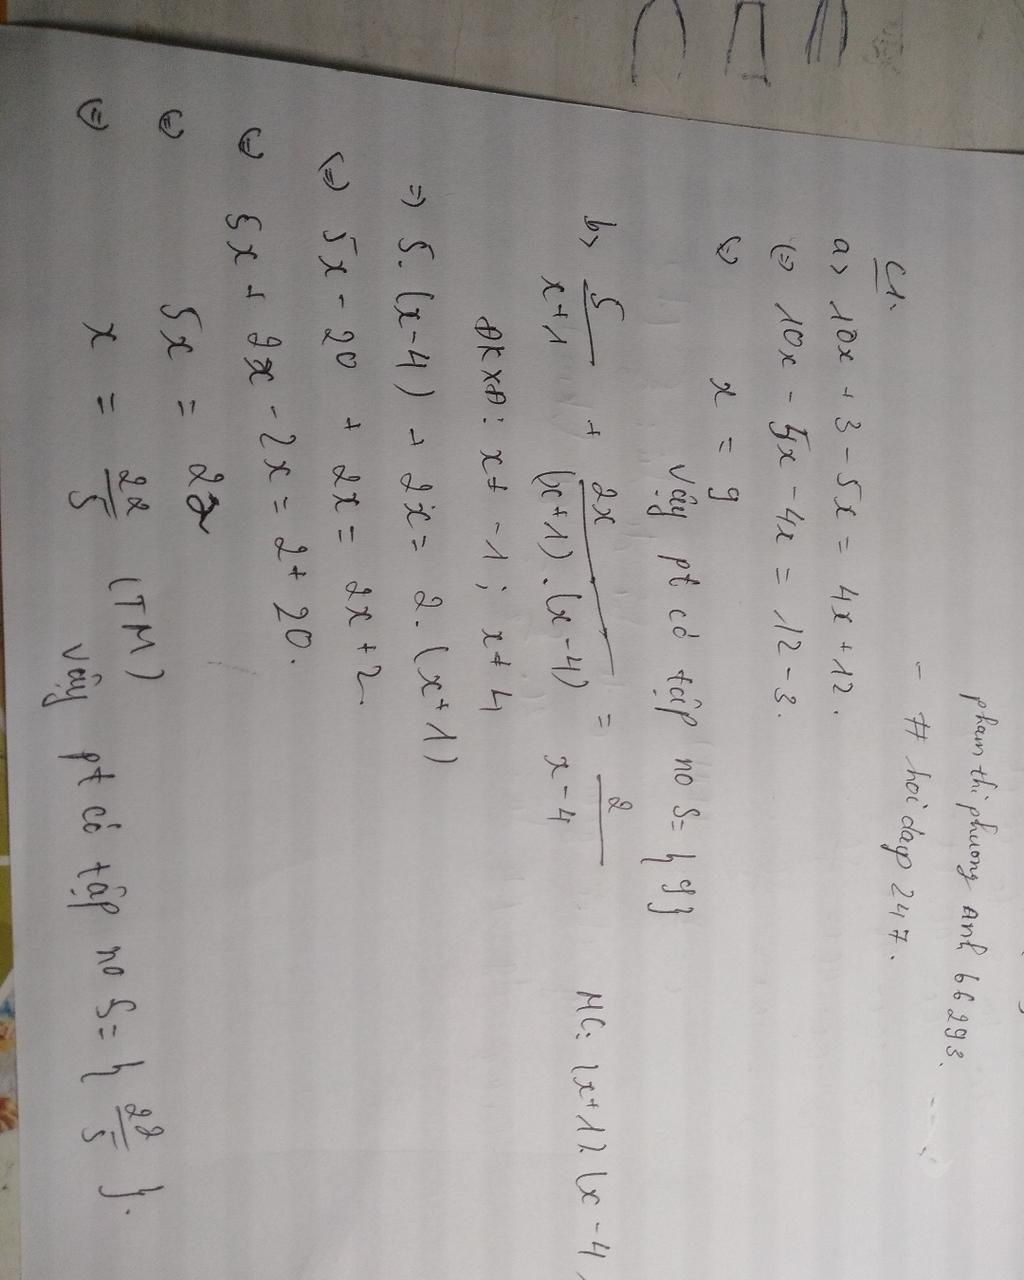 pham thi phuong anh 66293.
- # hoidap 247.
C1.
a> 10x + 3 - 5x = 4x + 12.
(=) 10x - 5x - 4x = 12 - 3.
(=) x = 9
Vậy pt có tập no S = { 9 }
b> 5/(x+1) + 2x/((x+1).(x-4)) = 2/(x-4) MC: (x+1)(x-4)
ĐKXĐ: x ≠ -1; x ≠ 4
=> 5.(x-4) + 2x = 2.(x+1)
(=) 5x - 20 + 2x = 2x + 2
(=) 5x + 2x - 2x = 2 + 20.
(=) 5x = 22
(=) x = 22/5 (TM)
Vậy pt có tập no S = { 22/5 }.